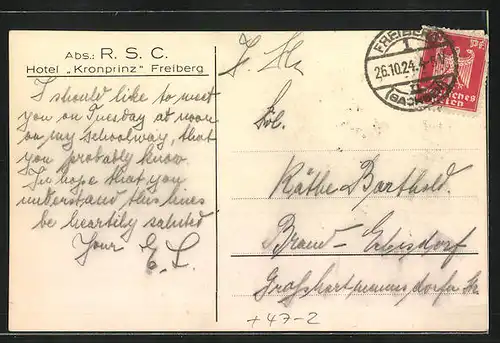 Abs.: R. S. C.
Hotel „Kronprinz" Freiberg
I should like to meet
you on Tuesday at noon
on my schoolway, that
you probably know.
In hope that you
understand this lines
be heartily saluted
Your E.
E. L.
FREIBERG
26.10.24.4-
(SACHSEN)
Deutsches
Reich
Käthe Barthold.
Brand-Erbisdorf
Großhartmannsdorfer Str.
+47-2